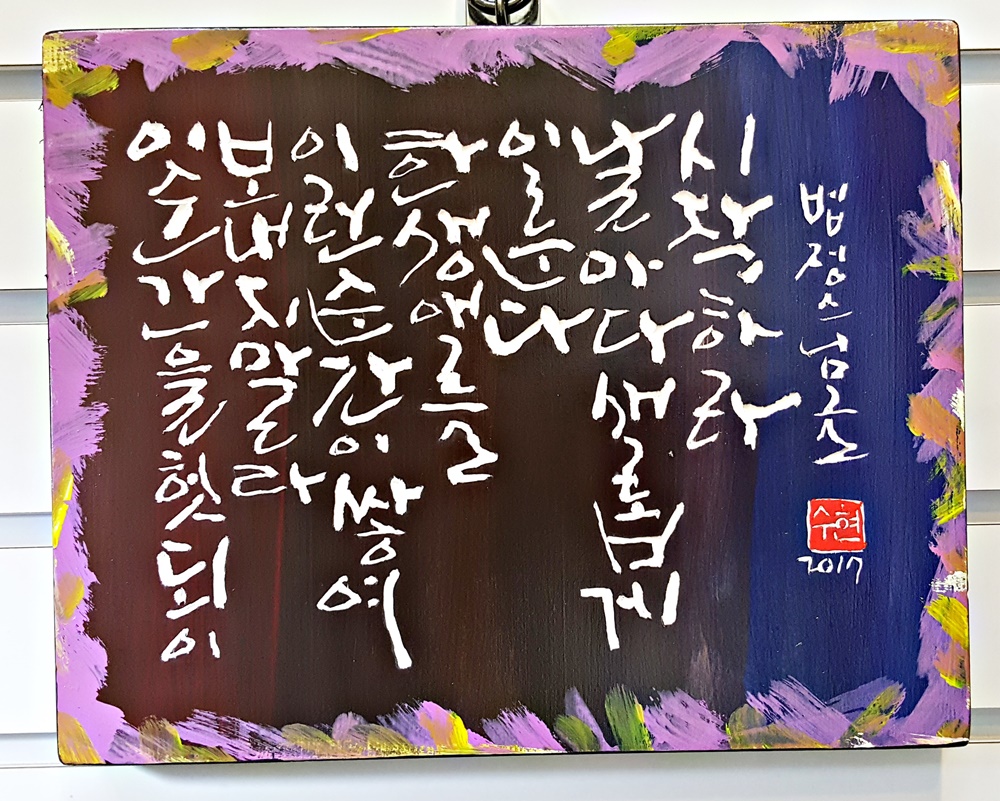 이 순간을 헛되이
보내지 말라
이런 순간이 쌓여
한 생애를
이룬다
날마다 새롭게
시작하라
법정스님 글
수현
2017